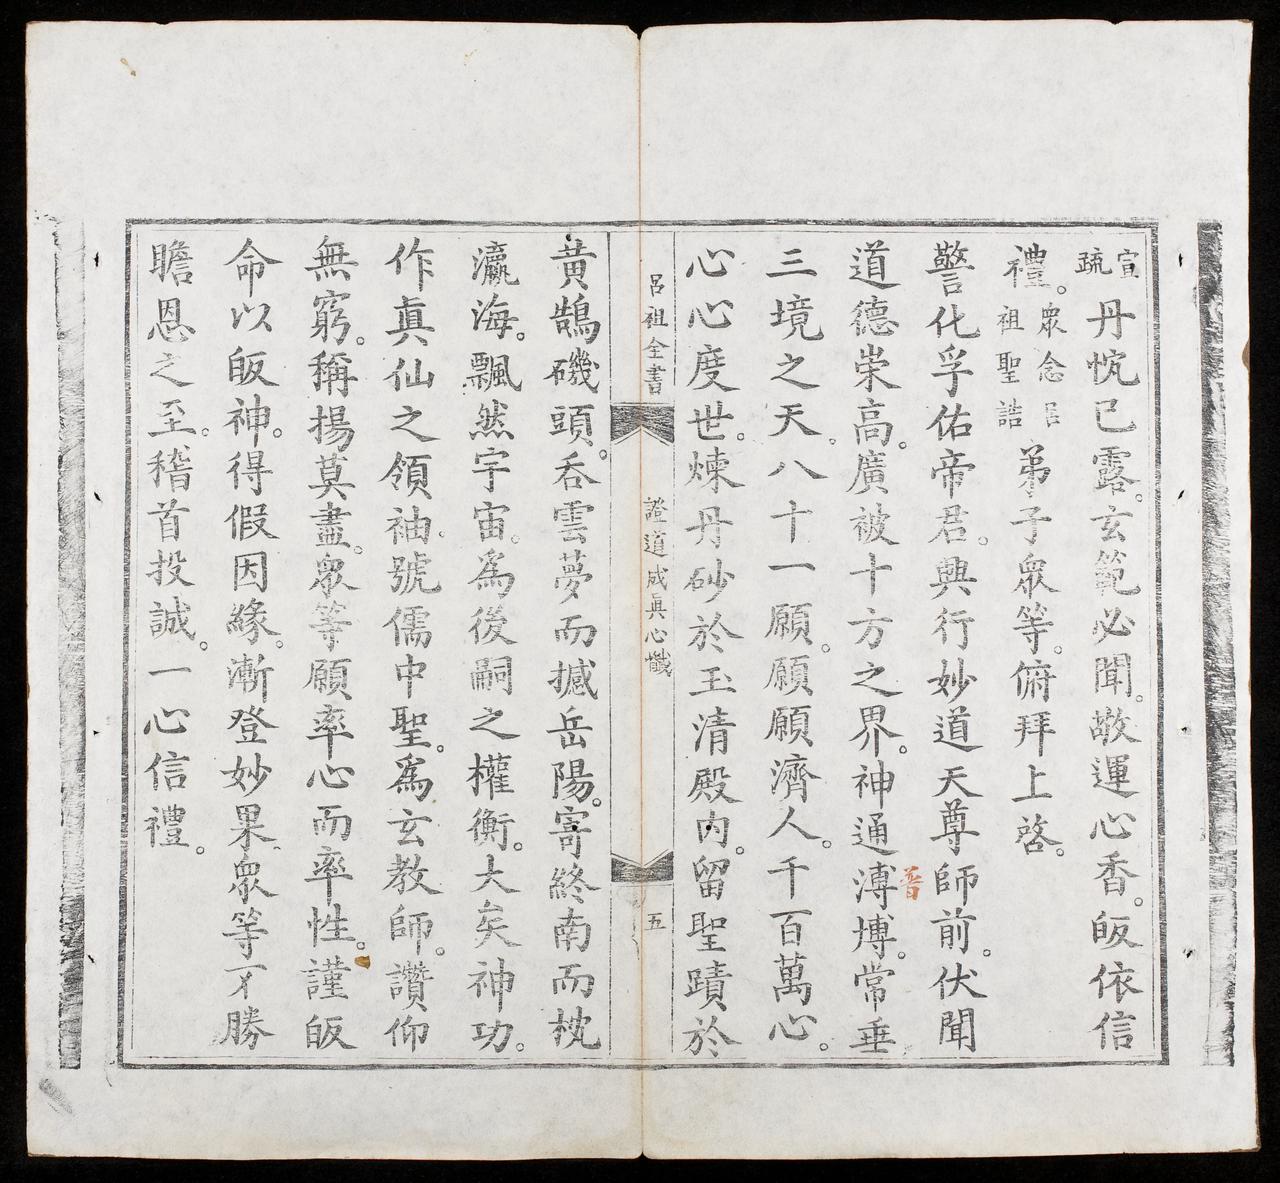 宣疏丹悃已露。玄範必聞。敬運心香。皈依信
禮。衆念呂祖聖誥弟子衆等。俯拜上啓。
警化孚佑帝君。興行妙道天尊師前。伏聞
道德崇高。廣被十方之界。神通溥博。常垂
普
三境之天。八十一願。願願願濟人。千百萬心。
心心度世。煉丹砂於玉清殿内。留聖蹟於
呂祖全書
證道成眞心懺
五
黄鶴磯頭。吞雲夢而撼岳陽。寄終南而枕
瀛海。飄然宇宙。爲後嗣之權衡。大矣神功。
作眞仙之領袖。號儒中聖。爲玄教師。讚仰
無窮。稱揚莫盡。衆等願率心而率性。謹皈
命以皈神。得假因緣。漸登妙果。衆等不勝
瞻恩之至。稽首投誠。一心信禮。